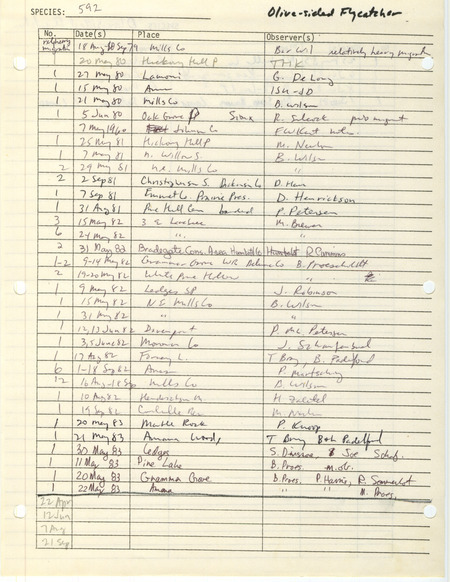 SPECIES: 592 Olive-sided Flycatcher
No. Date(s) Place Observer(s)
relatively heavy migrat 18 Aug-18 Sep 79 Mills Co B. Wil relatively heavy migrat
20 May 80 Hickory Hill P THK
1 27 May 80 Lamoni G. DeLong
1 15 May 80 Ames ISU-JD
1 21 May 80 Mills Co B. Wilson
1 5 Jun 80 Oak Grove P Sioux R. Silcock
7 May 1960 Johnson Co F.W. Kent
1 25 May 81 Hickory Hill P M. Newlon
1 7 May 81 n. Willow S. B. Wilson
2 29 May 81 n.e. Mills Co "
2 2 Sep 81 Dickinson Co D. Harr
1 7 Sep 81 Emmet Co. Prairie Pres. D. Henrickson
1 31 Aug 81 Pine Hill Cem banded P. Petersen
3 15 May 82 3 E Lovilia M. Brewer
6 24 May 82 " "
2 31 May 82 Bradgate Cons. Area Humboldt Co Humboldt R. Cummins
1-2 9-14 May 82 Grammer Grove WR B. Proescholdt
2 19-20 May 82 White Pine Hollow "
1 9 May 82 Ledges SP J. Robinson
1 15 May 82 NE Mills Co B. Wilson
1 31 May 82 " "
1 12, 13 Jun 82 Davenport P. Mc. Petersen
1 3, 5 June 82 Marion Co J. Schaufenbuel
1 17 Aug 82 Forney L. T. Bray, B. Padelford
6 1-18 Sep 82 Ames P. Martsching
1-2 16 Aug-18 Sep Mills Co B. Wilson
1 10 Aug 82 H. Zaletel
1 19 Sep 82 Coralville Res M. Newlon
1 20 May 83 Maple Rock P. Knopp
1 21 May 83 Amana Woods, T Bray B+L Padelford
1 30 May 83 Ledges S. Dinsmore, Joe Schuf.
1 11 May 83 Pine Lake B. Proes. m.ob.
1 20 May 83 Grammer Grove B. Proes. P. Harris, R.
1 22 May 83 Amana " " M. Proes,
22 Apr
12 Jun
7 Aug
21 Sep